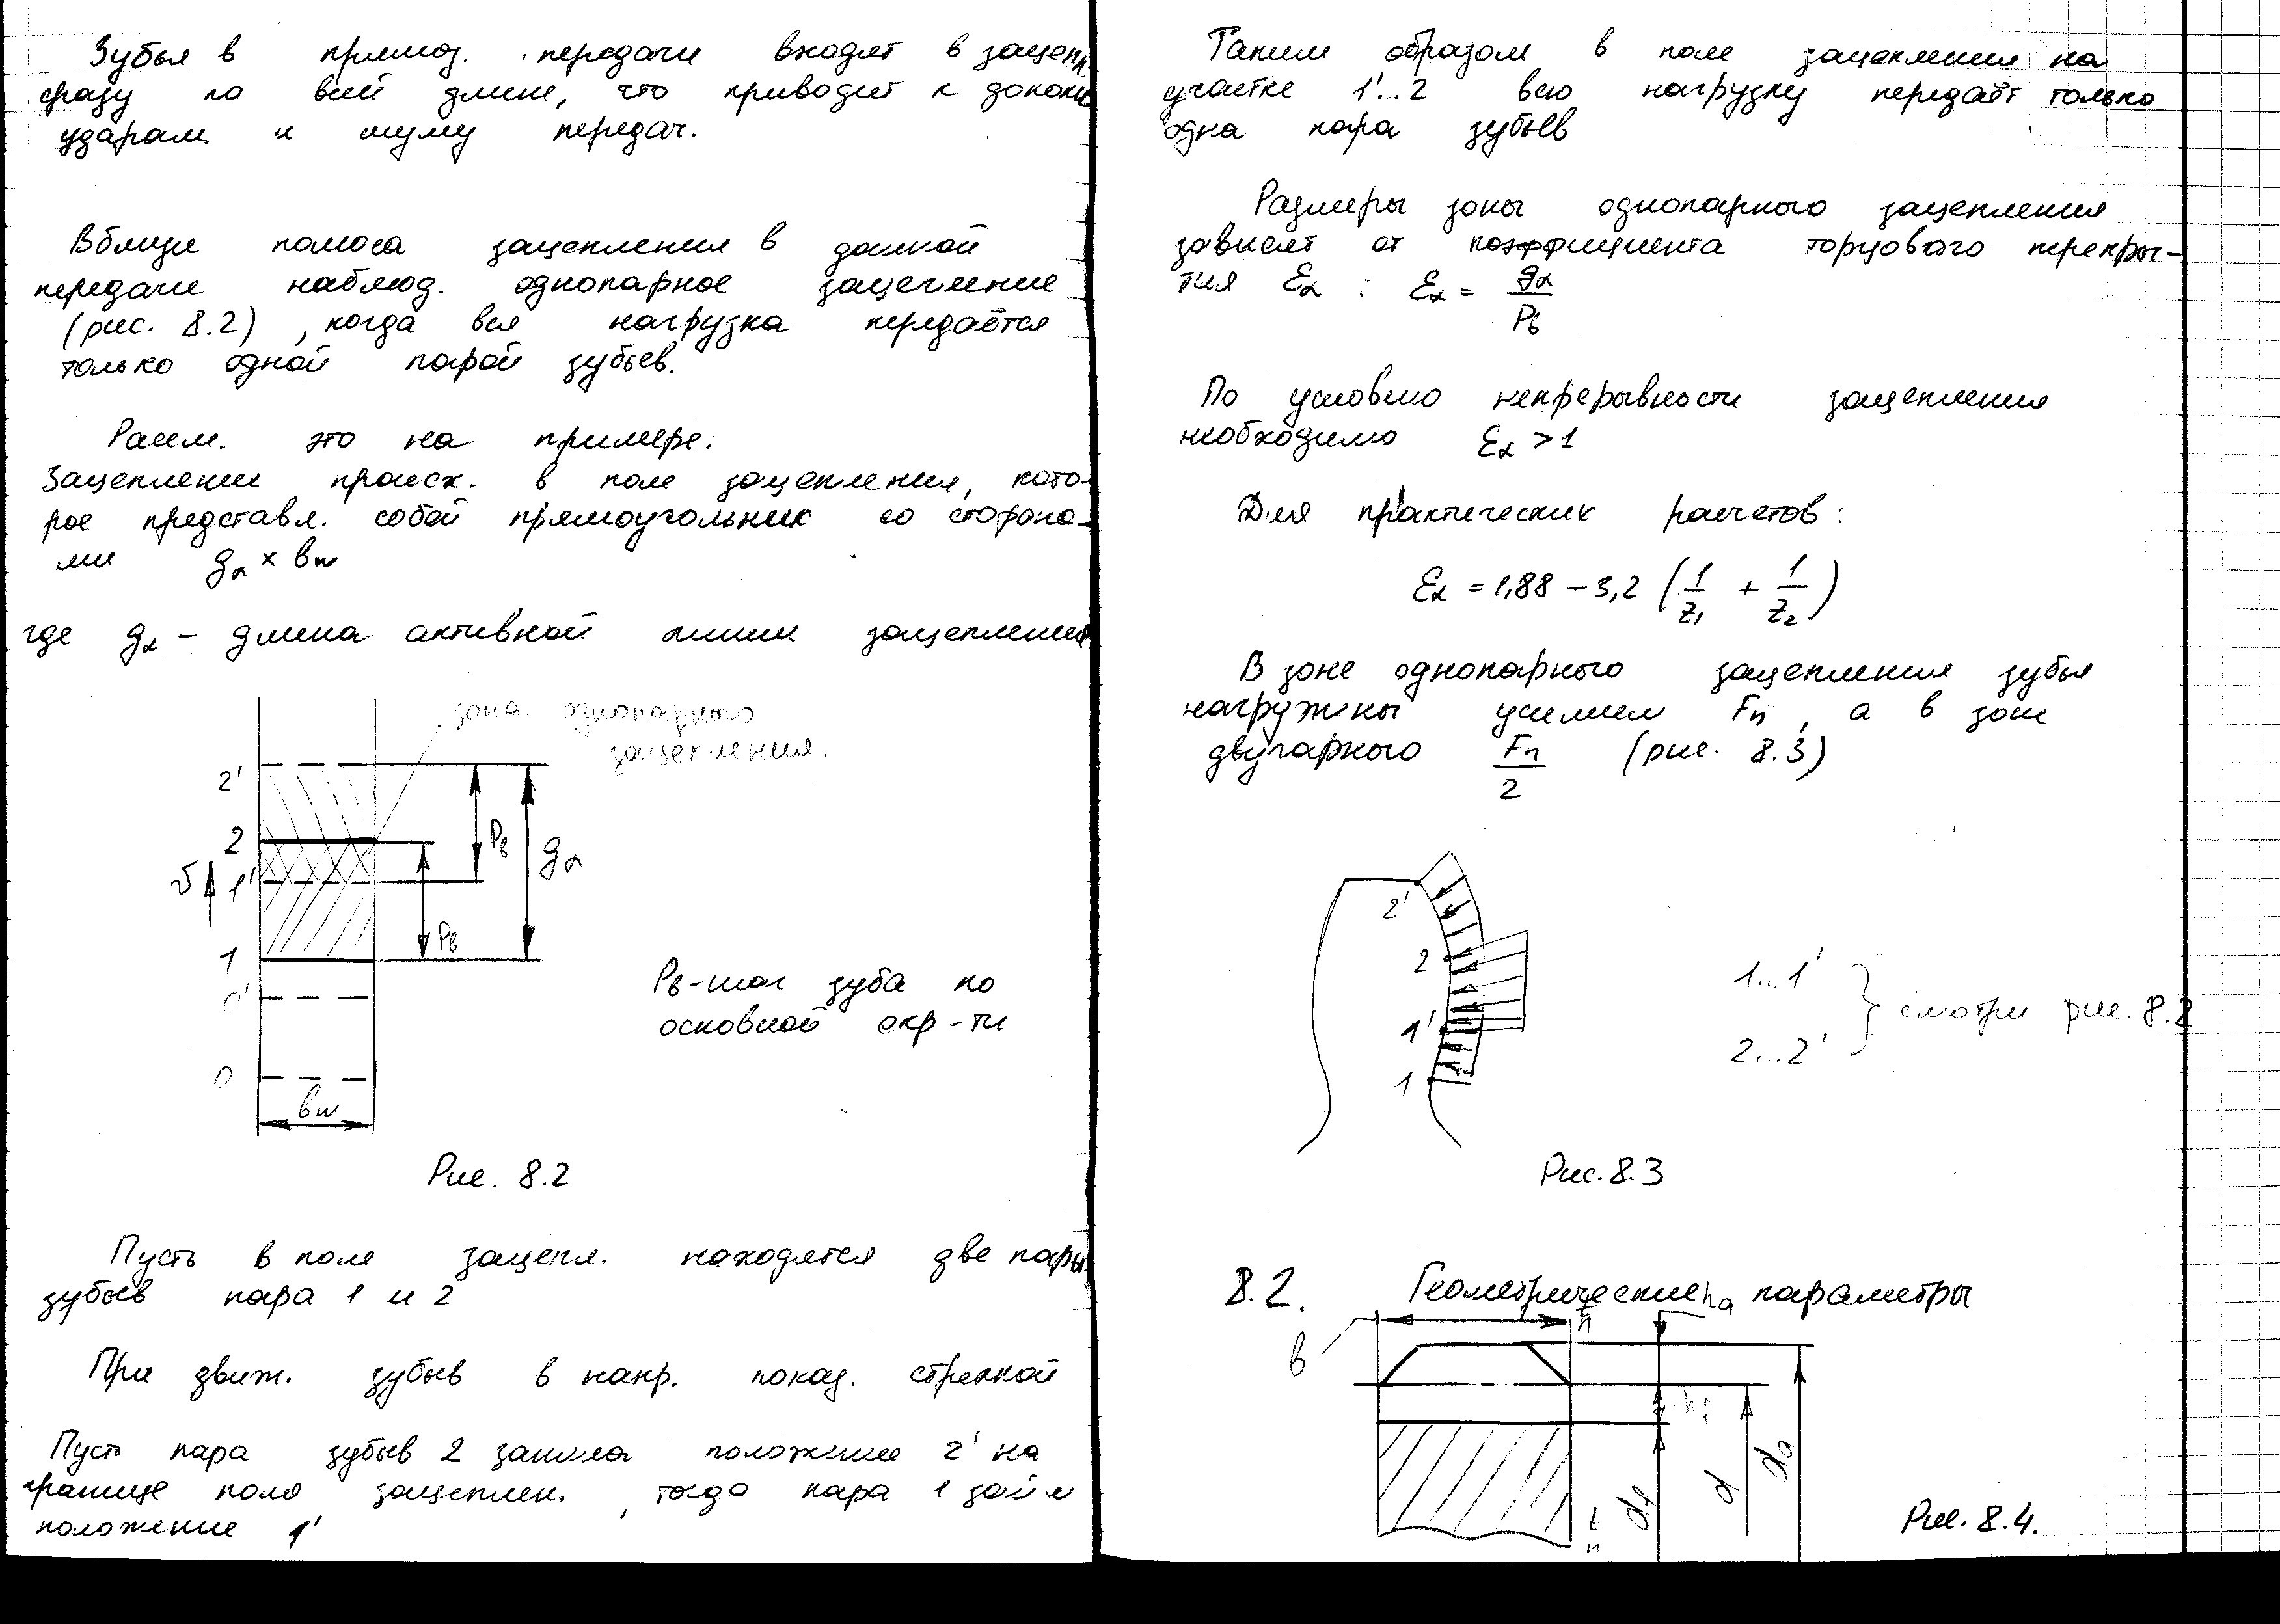 Зубья в прямоз. передачи входят в зацепл.
сразу по всей длине, что приводит к
ударам и шуму передач.
Вблизи полюса зацепления в данной
передаче наблюд. однопарное зацепление
(рис. 8.2), когда вся нагрузка передаётся
только одной парой зубьев.
Рассм. это на примере.
Зацепление происх. в поле зацепления, кото-
рое представл. собой прямоугольник со сторона-
ми gα × bw
где gα - длина активной линии зацепления
зона однопарного
зацепления.
2'
2
Pb
gα
v
1'
Pb
1
0'
0
bw
Pb - шаг зуба по
основной окр-ти
Рис. 8.2
Пусть в поле зацепл. находятся две пары
зубьев пара 1 и 2
При движ. зубьев в напр. показ. стрелкой
Пусть пара зубьев 2 заняла положение 2' на
границе поля зацеплен., тогда пара 1
положение 1'
Таким образом в поле зацепления на
участке 1'...2 всю нагрузку передаёт только
одна пара зубьев
Размеры зоны однопарного зацепления
зависят от коэффициента торцового перекры-
тия εα : εα = gα/Pb
По условию непрерывности зацепления
необходимо εα > 1
Для практических расчетов:
εα = 1,88 - 3,2 (1/z1 + 1/z2)
В зоне однопарного зацепления зубья
нагружены усилием Fn, а в зоне
двупарного Fn/2 (рис. 8.3)
2'
2
1'
1
1...1'
2...2'
смотри рис. 8.2
Рис. 8.3
8.2. Геометрические параметры
b
ha
hf
df
d
da
Рис. 8.4.